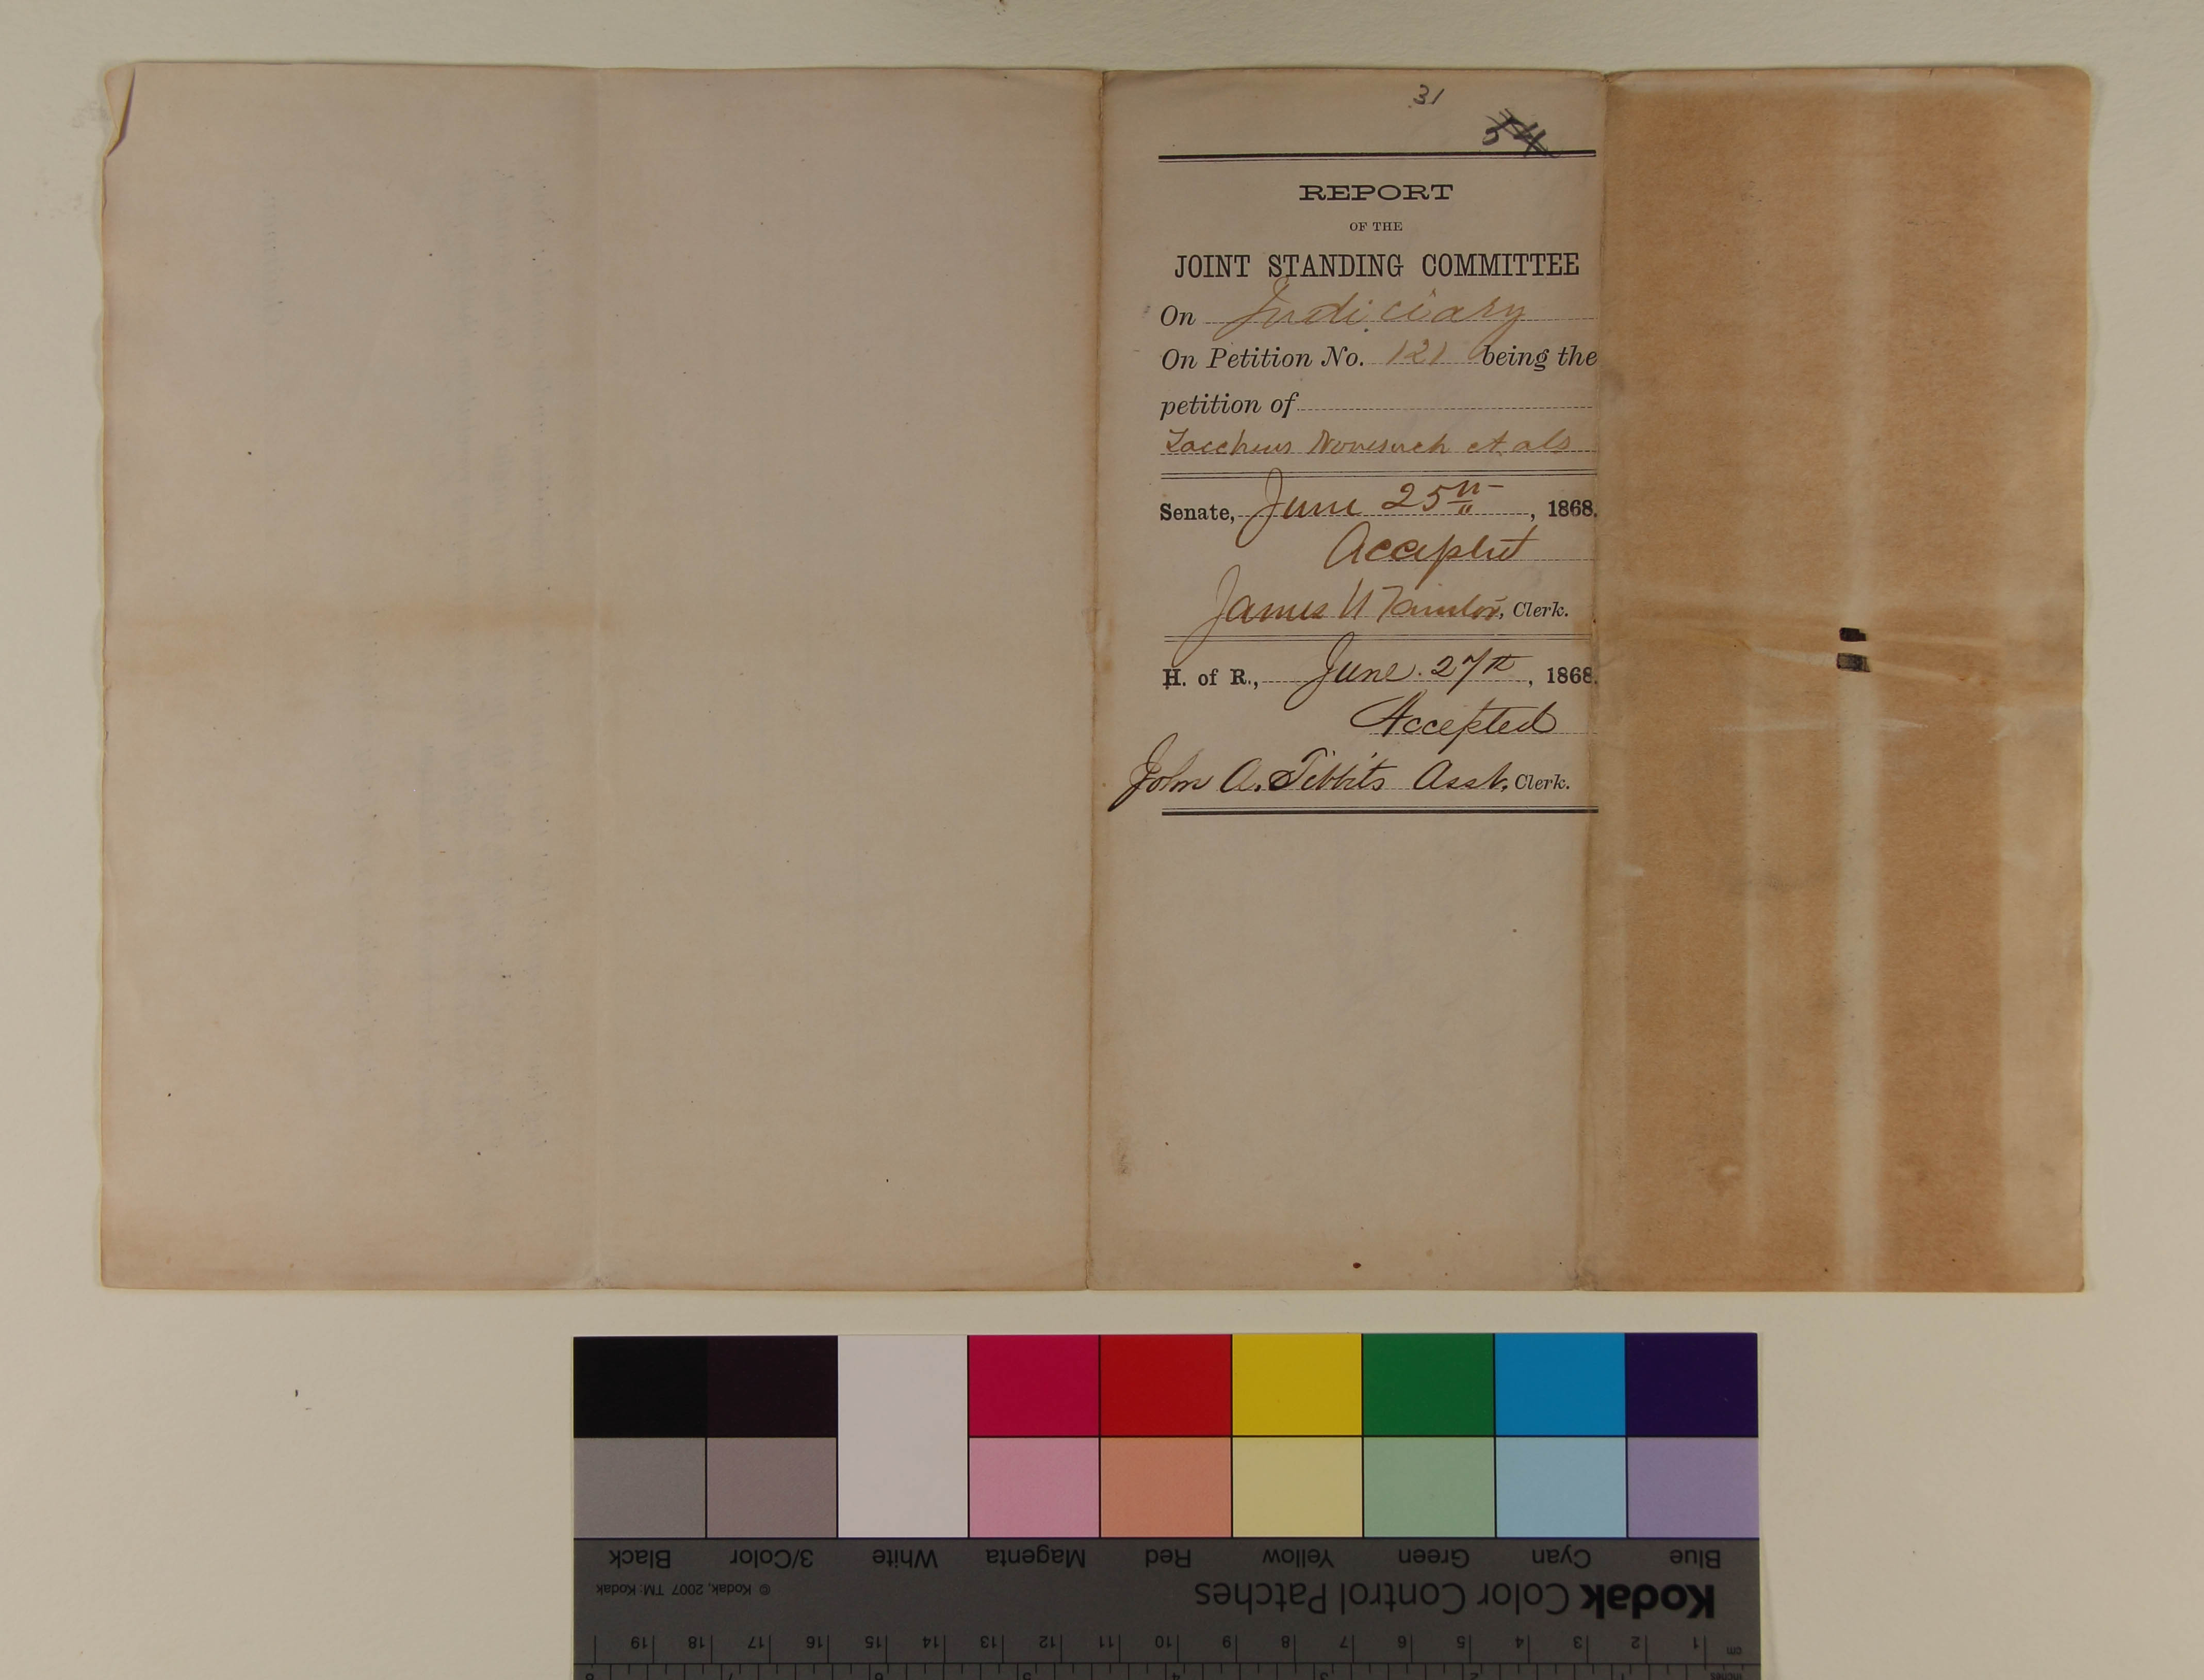 31
54
REPORT
OF THE
JOINT STANDING COMMITTEE
On Judiciary
On Petition No. 121 being the
petition of
Zaccheus Nonesuch et als
Senate, June 25th, 1868.
Accepted
James, Clerk.
H. of R., June 27th, 1868.
Accepted
John A. Tibbits Asst, Clerk.
Blue Cyan Green Yellow Red Magenta White 3/Color Black
Kodak Color Control Patches © Kodak, 2007 TM: Kodak
cm 1 2 3 4 5 6 7 8 9 10 11 12 13 14 15 16 17 18 19
inches 1 2 3 4 5 6 7 8